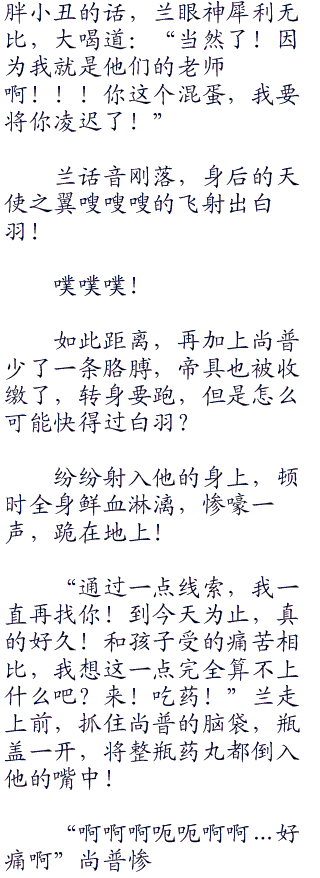 胖小丑的话，兰眼神犀利无
比，大喝道：“当然了！因
为我就是他们的老师
啊！！！你这个混蛋，我要
将你凌迟了！”
兰话音刚落，身后的天
使之翼嗖嗖嗖的飞射出白
羽！
噗噗噗！
如此距离，再加上尚普
少了一条胳膊，帝具也被收
缴了，转身要跑，但是怎么
可能快得过白羽？
纷纷射入他的身上，顿
时全身鲜血淋漓，惨嚎一
声，跪在地上！
“通过一点线索，我一
直再找你！到今天为止，真
的好久！和孩子受的痛苦相
比，我想这一点完全算不上
什么吧？来！吃药！”兰走
上前，抓住尚普的脑袋，瓶
盖一开，将整瓶药丸都倒入
他的嘴中！
“啊啊啊呃呃啊啊…好
痛啊”尚普惨